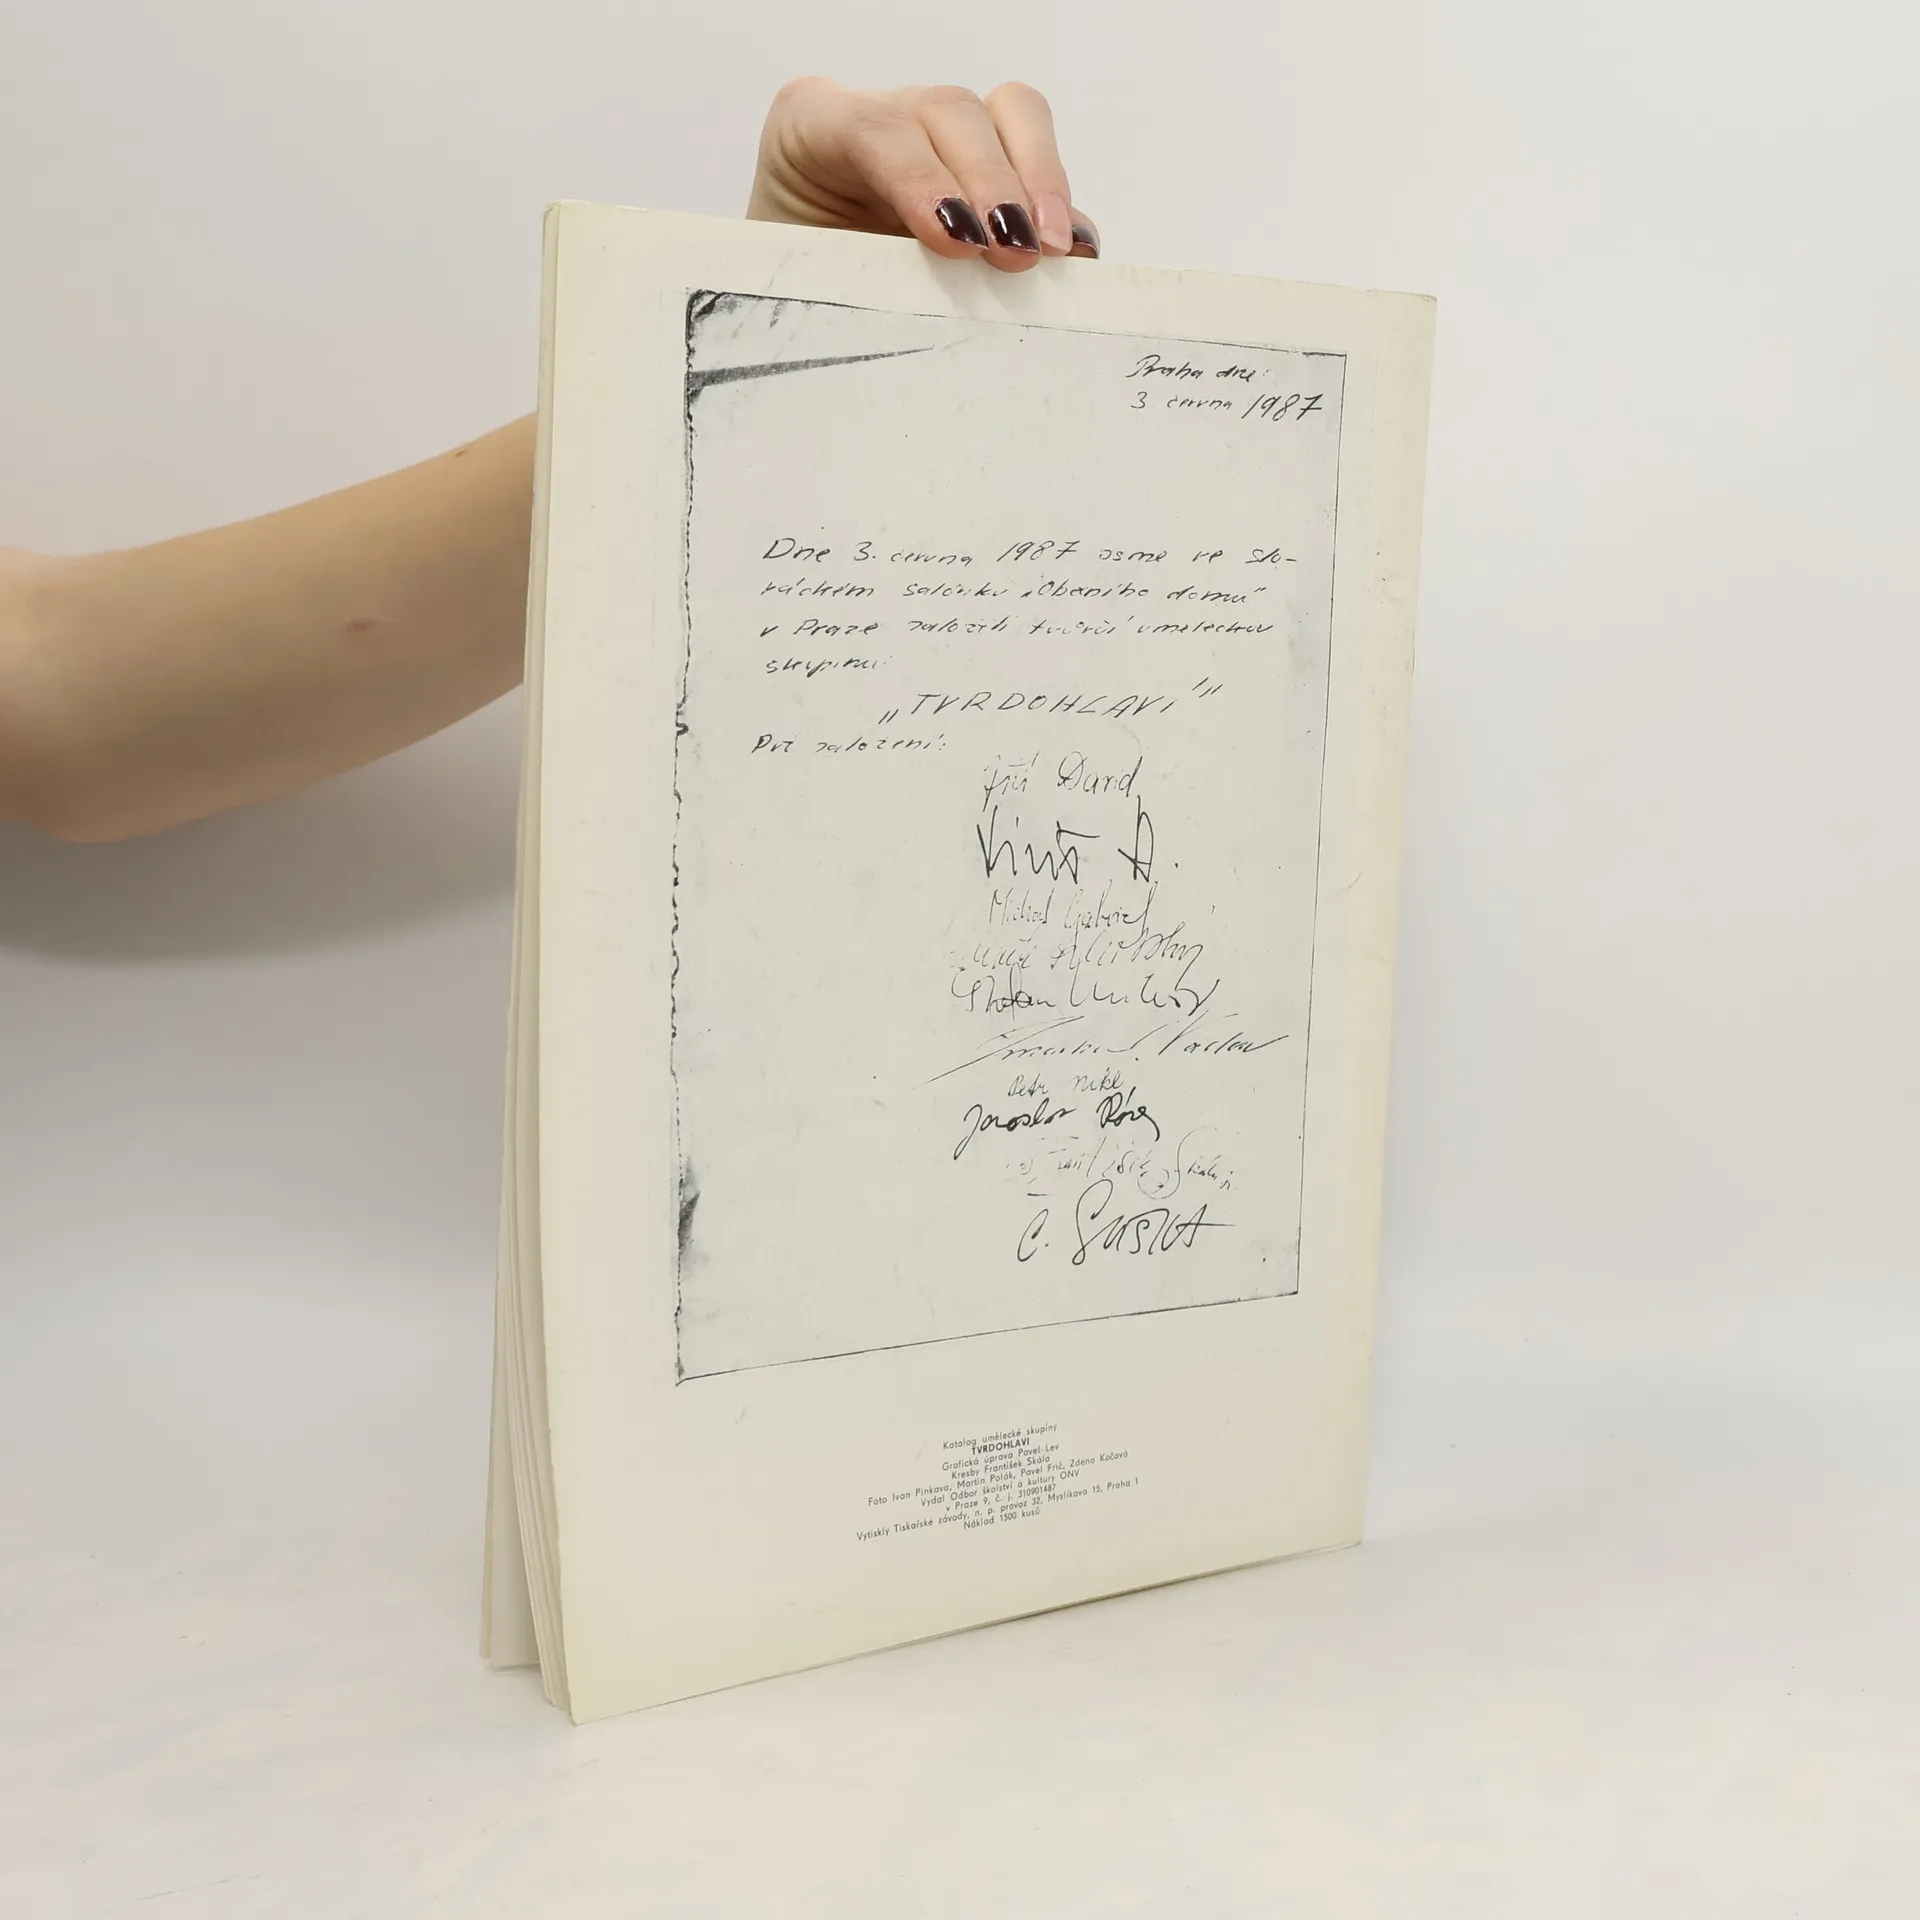 Praha dne:
3. června 1987
Dne 3. června 1987 jsme ve slo-
váckém salónku „Obecního domu"
v Praze založili tvůrčí uměleckou
skupinu:
„TVRDOHLAVÍ"
Při založení:
Jiří David
Michal Gabriel
Stefan
Václav
Petr Nikl
Jaroslav Róna
František Skála jr.
Č. Suška
Katalog umělecké skupiny
TVRDOHLAVI
Grafická úprava Pavel Lev
Kresby František Skála
Foto Ivan Pinkava, Martin Polák, Pavel Frič, Zdena Kočová
Vydal Odbor školství a kultury ONV
v Praze 9, č. j. 310901487
Vytiskly Tiskařské závody, n. p. provoz 32, Myslíkova 15, Praha 1
Náklad 1500 kusů